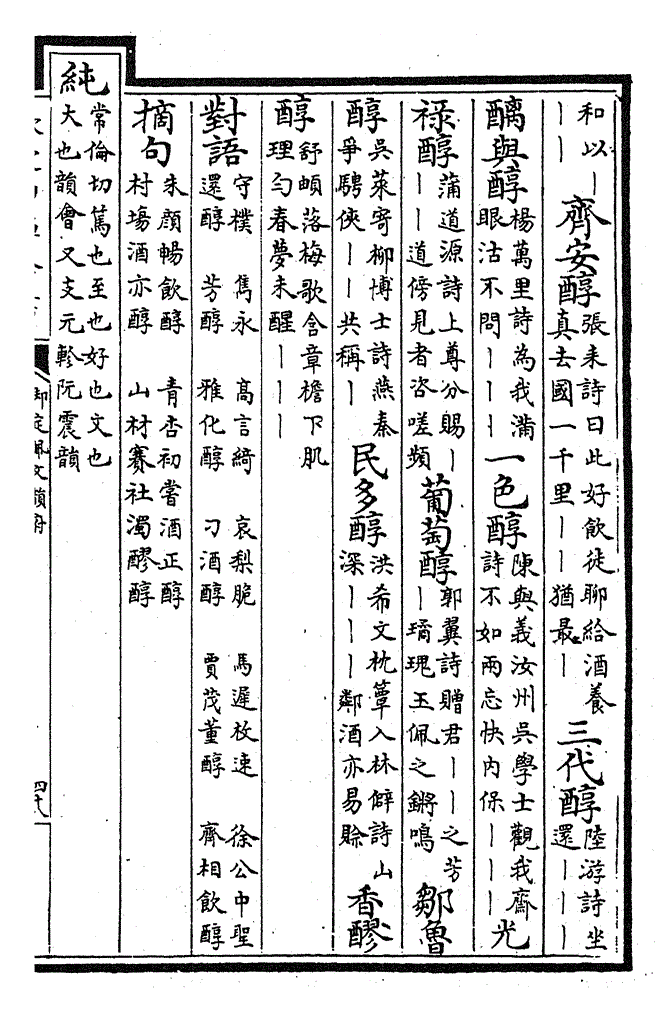 和以｜｜｜齊安醇張耒詩曰此好飲徒聊給酒養真去國一千里｜｜猶最｜三代醇陸游詩坐還｜｜｜
醨與醇楊萬里詩為我滿眼沽不問｜｜｜一色醇陳與義汝州吳學士觀我齋詩不如兩忘快内保｜｜｜光
祿醇蒲道源詩上尊分賜｜｜｜道傍見者咨嗟頻葡萄醇郭翼詩贈君｜｜之芳｜璚瑰玉佩之鏘鳴鄒魯
醇吳萊寄柳博士詩燕秦爭騁俠｜｜共稱｜民多醇洪希文枕簟入林僻詩山深｜｜｜鄰酒亦易賒香醪
醇舒頔落梅歌含章檐下肌理勻春夢未醒｜｜｜
對語守樸　還醇　雋永　芳醇　高言綺　雅化醇　哀梨脆　刁酒醇　馬遲枚速　賈茂董醇　徐公中聖　齊相飲醇
摘句朱顏暢飲醇　村塲酒亦醇　青杏初嘗酒正醇　山村賽社濁醪醇
純常倫切篤也至也好也文也大也韻會又支元軫阮震韻
御定佩文韻府
四八